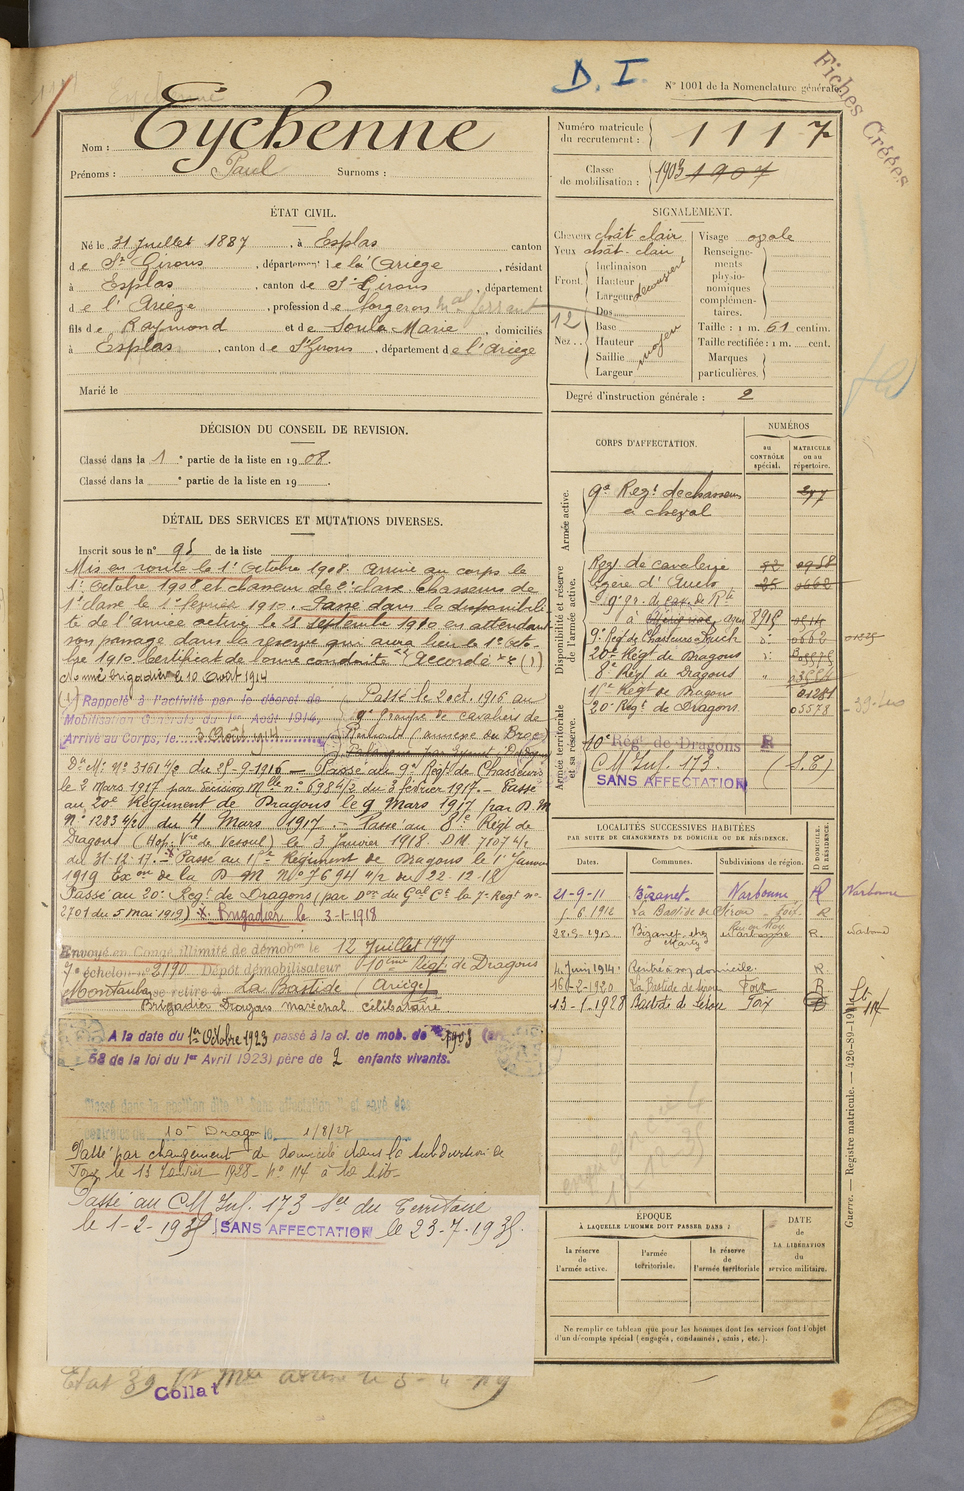 D. I.
N° 1001 de la Nomenclature générale.
Fiches Créées
Nom : Eychenne
Prénoms : Paul Surnoms :
Numéro matricule du recrutement : 1117
Classe de mobilisation : 1903 1907
ÉTAT CIVIL.
Né le 31 Juillet 1887, à Esplas canton
de St Girons, département de l'Ariège, résidant
à Esplas, canton de St Girons, département
de l'Ariège, profession de forgeron mal ferrant
fils de Raymond et de Soula Marie, domiciliés
à Esplas, canton de St Girons, département de l'Ariège
Marié le
SIGNALEMENT.
Cheveux chât clair
Yeux chât-clair
Front Inclinaison
Hauteur
Largeur
Nez Dos
Base
Hauteur
Saillie moyen
Largeur
12
Visage ovale
Renseignements physionomiques complémentaires.
Taille : 1 m. 61 centim.
Taille rectifiée : 1 m. cent.
Marques particulières.
Degré d'instruction générale : 2
DÉCISION DU CONSEIL DE REVISION.
Classé dans la 1e partie de la liste en 1908.
Classé dans la e partie de la liste en 19 .
DÉTAIL DES SERVICES ET MUTATIONS DIVERSES.
Inscrit sous le n° 95 de la liste
Mis en route le 1er Octobre 1908. Arrivé au corps le
1er Octobre 1908 et chasseur de 2e classe Chasseur de
1e classe le 1er février 1910. Passé dans la disponibili-
té de l'armée active le 25 Septembre 1910 en attendant
son passage dans la réserve qui aura lieu le 1er Octo-
bre 1910. Certificat de bonne conduite "Accordé" (1)
Nommé brigadier le 10 Août 1914
(1) Rappelé à l'activité par le décret de
Mobilisation Générale du 1er Août 1914,
Arrivé au Corps, le 3 Août 1914
Passé le 2 oct. 1916 au
9e Groupe de cavaliers de
Don Mle N° 3161 4/2 du 25-9-1916 — Passé au 9e Régt de Chasseurs
le 2 Mars 1917 par décision Mlle n° 6984/2 du 3 février 1917. — Passé
au 20e Régiment de Dragons le 9 Mars 1917 par D. M
N° 1283 4/2 du 4 Mars 1917. — Passé au 8e Régt de
Dragons (Hop. Vre de Vesoul) le 3 Janvier 1918 DM 7107 4/2
du 31-12-17. — Passé au 15e Régiment de Dragons le 1er Janvier
1919 Exon de la D M N° 7694 4/2 du 22-12-18
Passé au 20e Régt de Dragons (par Don du Gal Ct la 7e Régn n°
2701 du 5 mai 1919) X. Brigadier le 3-1-1918
Envoyé en Congé illimité de démobon le 12 Juillet 1919
7e échelon n° 2190 Dépôt démobilisateur 10ème Régt de Dragons
Montauban se retire à La Bastide (Ariège)
Brigadier Dragons maréchal célibataire
A la date du 1er Octobre 1923 passé à la cl. de mob. de 1903 (art.
58 de la loi du 1er Avril 1923) père de 2 enfants vivants.
Classé dans la position dite "Sans affectation" et rayé des
10e Dragons 1/8/27
Passé par changement de domicile dans la Subdivision de
Foix le 13 Janvier 1928 - N° 114 à la liste
Passé au CM Inf. 173 Son du Territoire
le 1-2-1935 SANS AFFECTATION le 23-7-1935.
Collat
CORPS D'AFFECTATION.
NUMÉROS
au CONTRÔLE spécial.
MATRICULE ou au répertoire.
Armée active.
9e Régt de chasseurs à cheval 277
Disponibilité et réserve de l'armée active.
Régt de cavalerie 52 0958
légère d'Auch 25 0662
8915 0514
9e Rég. de Chasseurs Auch d° 0662
20e Régt de Dragons d° 05575
8e Régt de Dragons " 03554
15e Régt de Dragons 01281
20e Régt de Dragons 05578
Armée territoriale et sa réserve.
10e Régt de Dragons R
CM Inf. 173 (S.T)
SANS AFFECTATION
LOCALITÉS SUCCESSIVES HABITÉES
PAR SUITE DE CHANGEMENTS DE DOMICILE OU DE RÉSIDENCE.
Dates. Communes. Subdivisions de région. D DOMICILE. R RÉSIDENCE.
21-9-11 Bizanet Narbonne R Narbonne
1-6-1912 La Bastide de Sérou Foix R
28-5-1913 Bizanet chez Narbonne R.
4 Juin 1914 Rentré à son domicile R
16-2-1920 La Bastide de Serou Foix R
13-1-1928 Bastide de Sérou Foix D
ÉPOQUE
À LAQUELLE L'HOMME DOIT PASSER DANS :
la réserve de l'armée active.
l'armée territoriale.
la réserve de l'armée territoriale
DATE de LA LIBÉRATION du service militaire.
Ne remplir ce tableau que pour les hommes dont les services font l'objet
d'un décompte spécial (engagés, condamnés, omis, etc.).
Guerre. — Registre matricule. — 426-89-1914